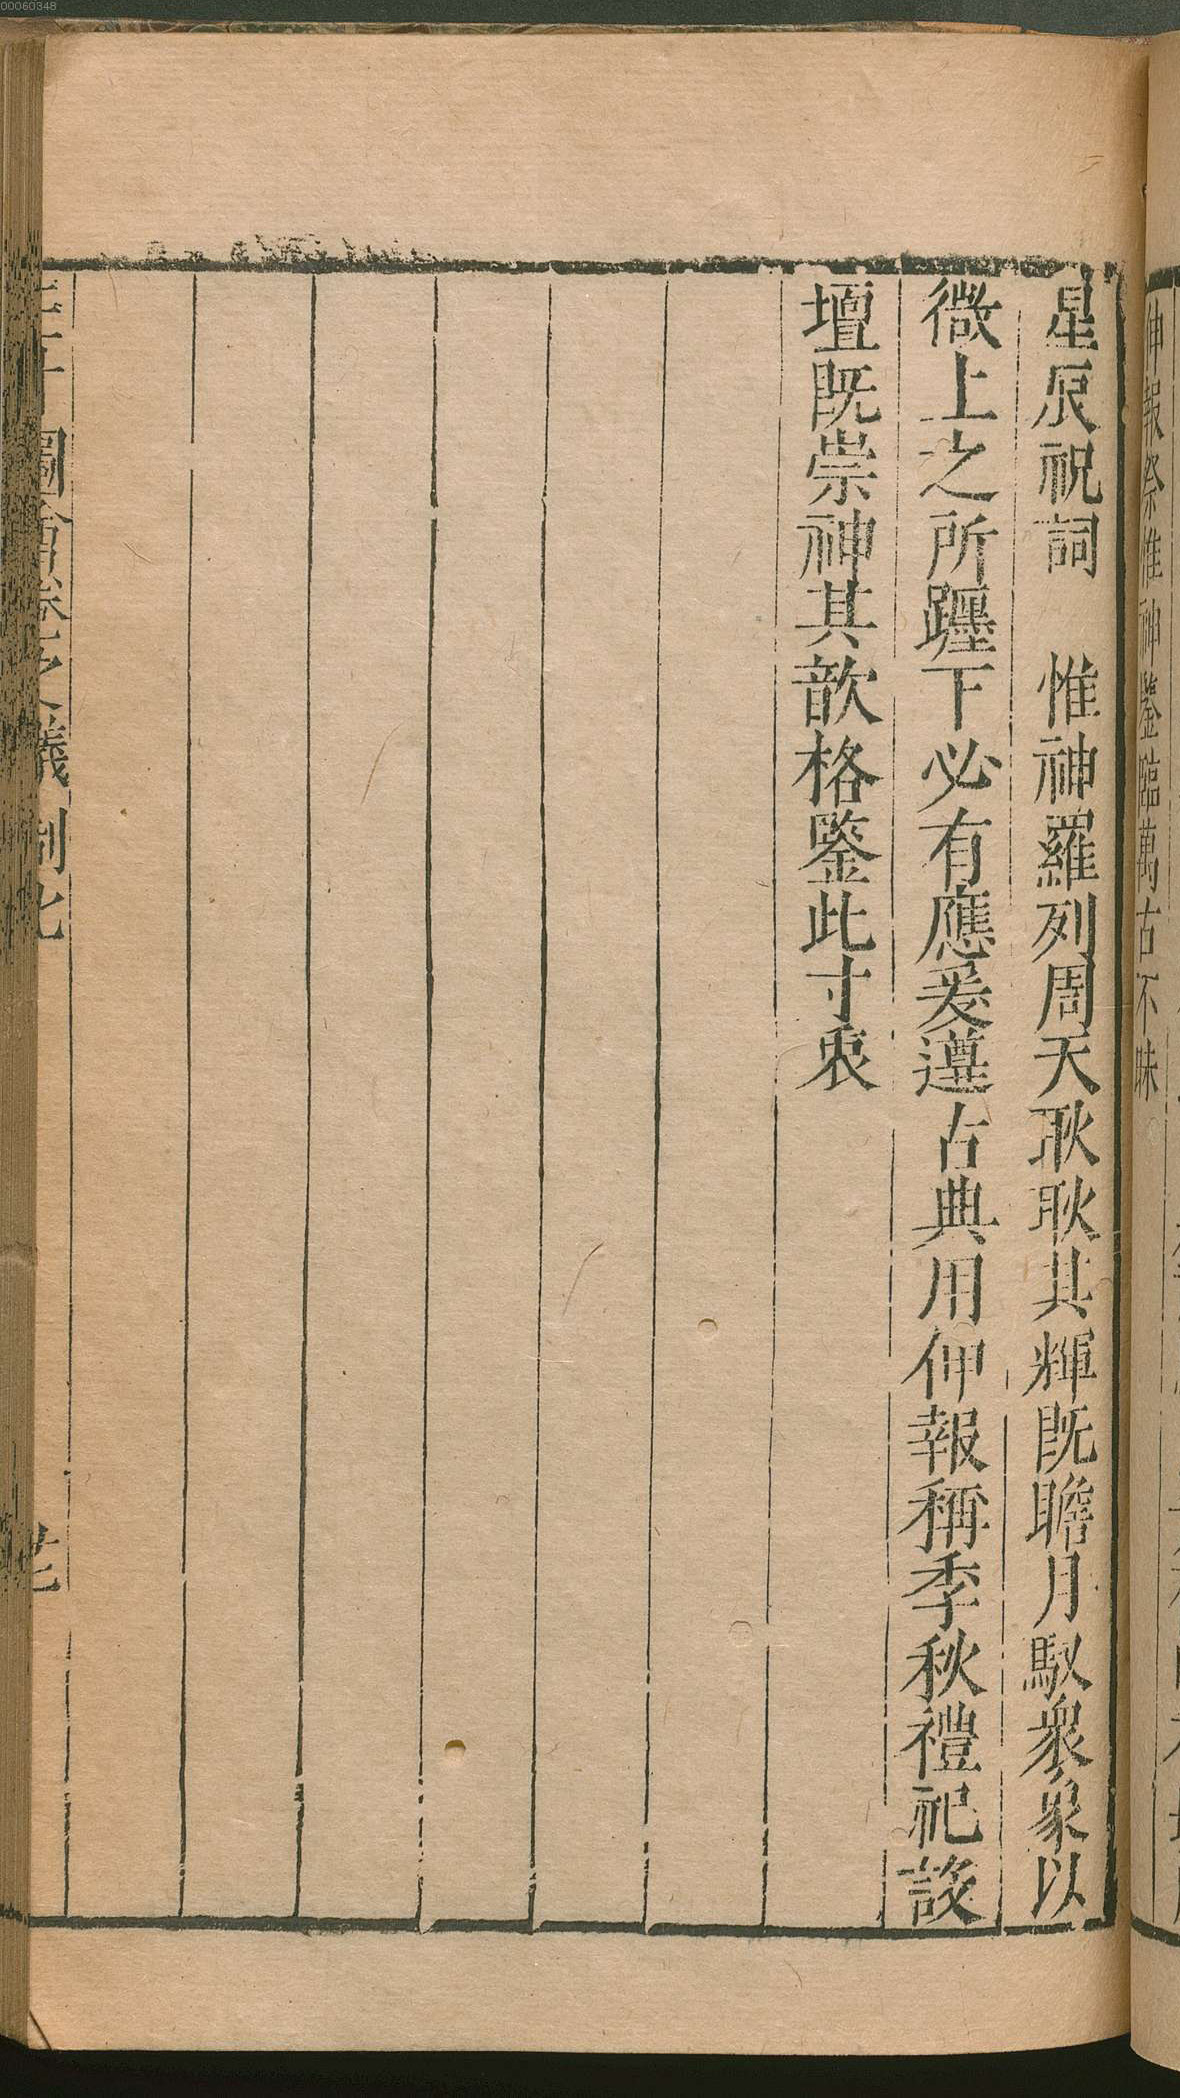 00060348
伸報祭惟神鑒臨萬古不昧
星辰祝詞　惟神羅列周天耿耿其輝既瞻月馭衆象以
微上之所躔下必有應爰遵古典用伸報稱季秋禮祀設
壇既崇神其歆格鑒此寸衷
圖會卷之儀制七